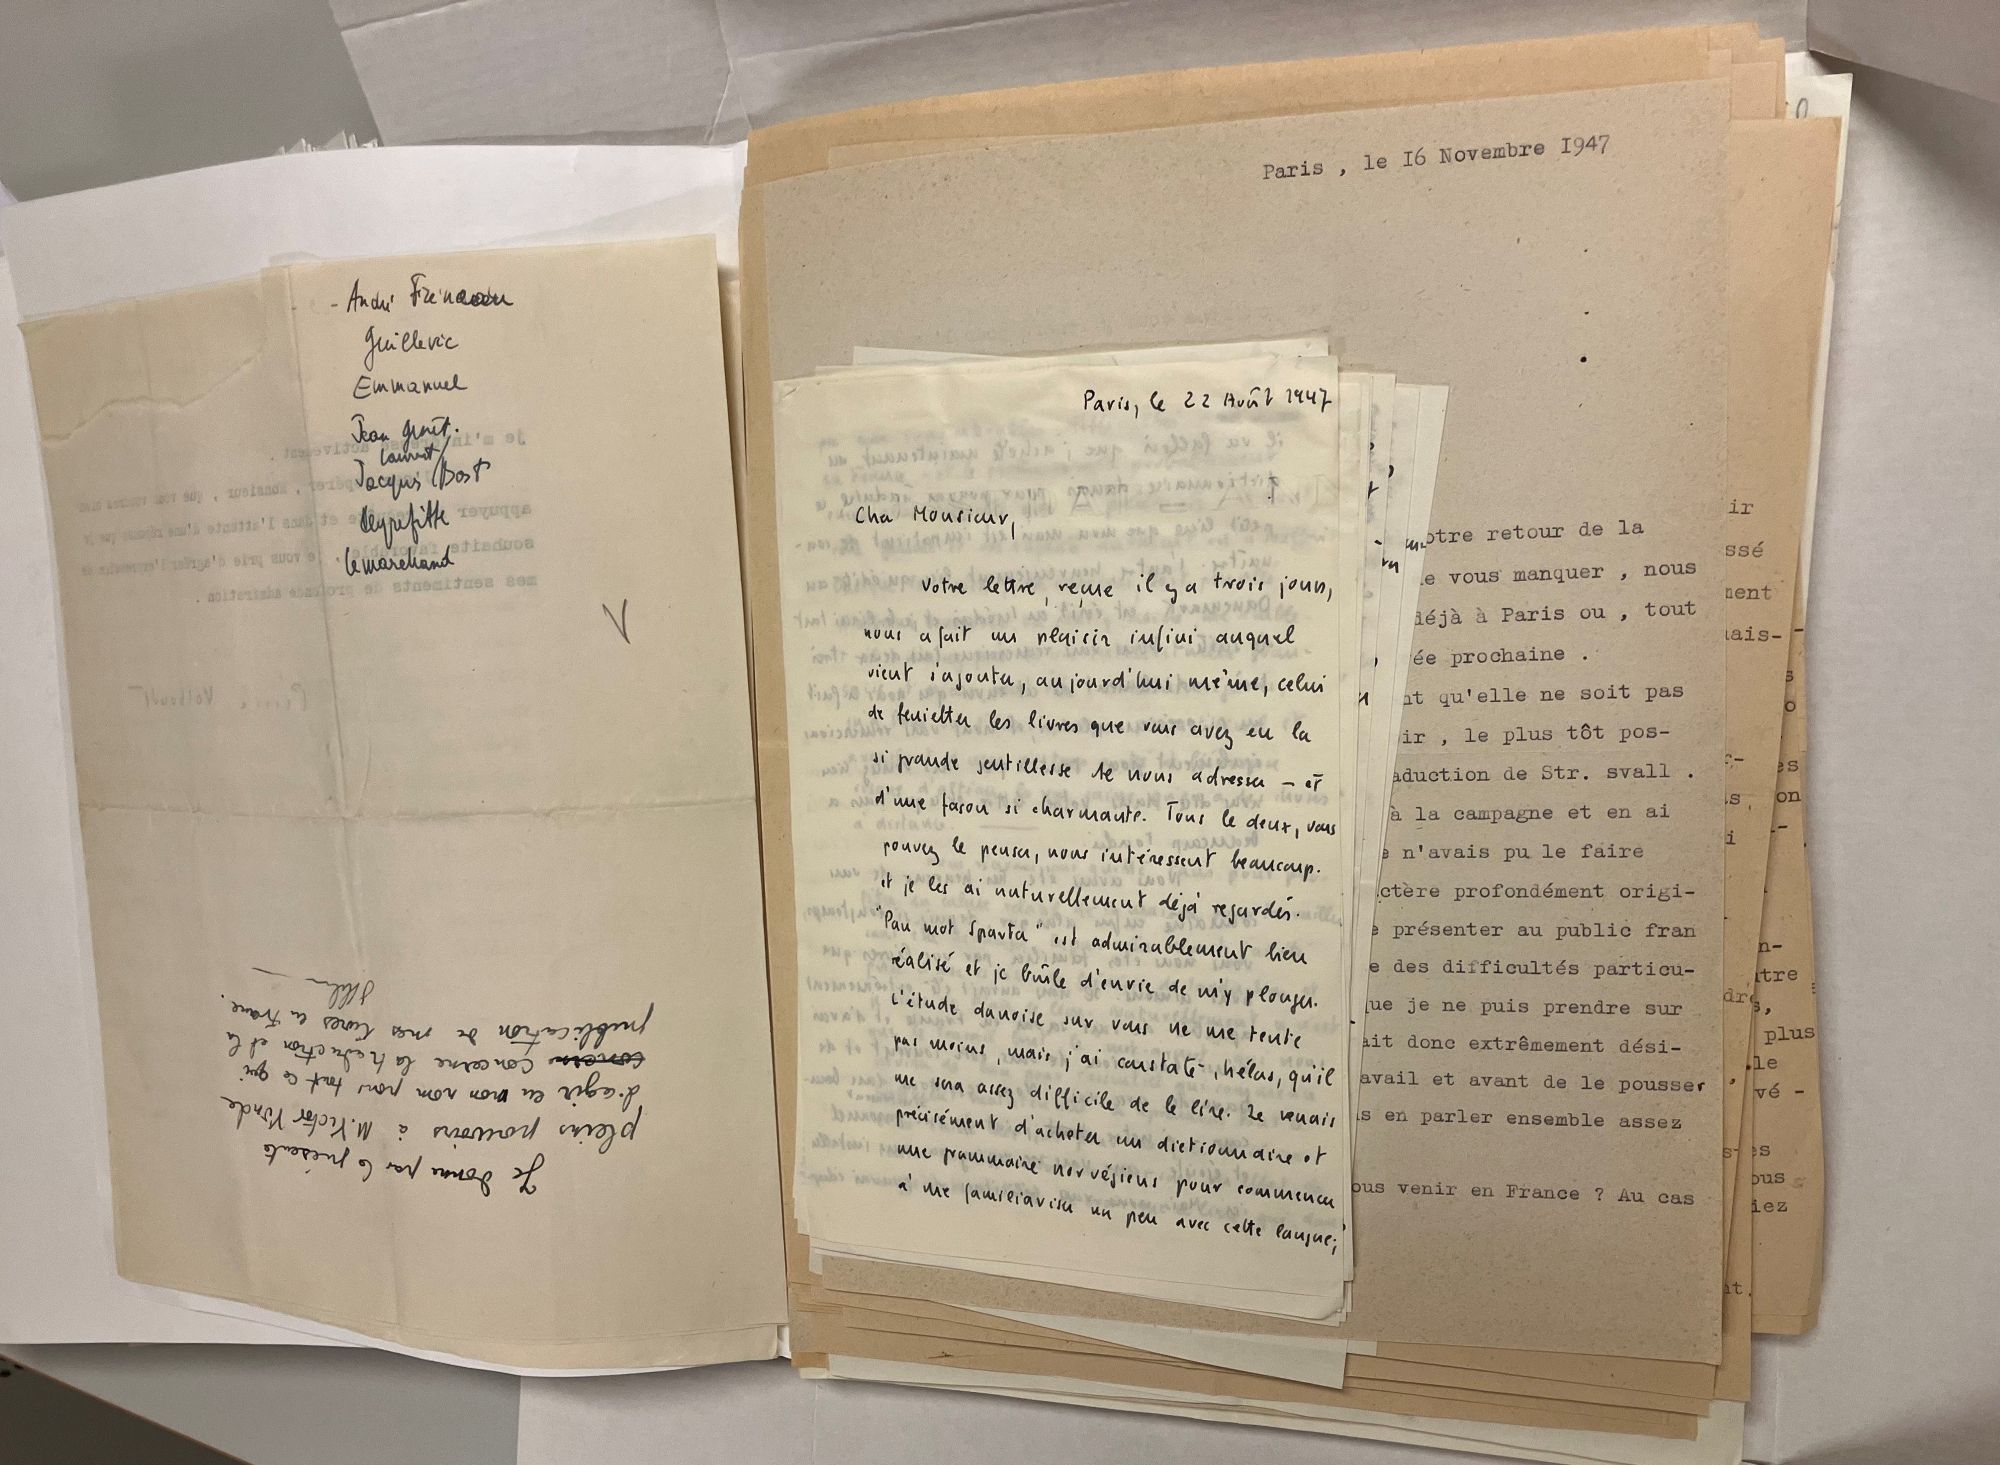 - André Frénaud
Guillevic
Emmanuel
Jean Genêt.
Laurent/
Jacques Bost
Peyrefitte
Lemarchand
Je donne par la présente
pleins pouvoirs à M. Victor Vinde
d'agir en mon nom pour tout ce qui
concerne la traduction et la
publication de mes livres en France.
je m'in activement.
pérer, Monsieur, que vous voudrez bien
appuyer et dans l'attente d'une réponse que je
souhaite favorable, je vous prie d'agréer l'
mes sentiments de profonde admiration.
Paris, le 22 Août 1947
Cher Monsieur,
Votre lettre, reçue il y a trois jours,
nous a fait un plaisir infini auquel
vient s'ajouter, aujourd'hui même, celui
de feuilleter les livres que vous avez eu la
si grande gentillesse de nous adresser – et
d'une façon si charmante. Tous le deux, vous
pouvez le penser, nous intéressent beaucoup.
et je les ai naturellement déjà regardés.
"Pan mot Sparta" est admirablement bien
réalisé et je brûle d'envie de m'y plonger.
L'étude danoise sur vous ne me tente
pas moins, mais j'ai constaté, hélas, qu'il
me sera assez difficile de le lire. Je venais
précisément d'acheter un dictionnaire et
une grammaire norvégiens pour commencer
à me familiariser un peu avec cette langue;
Paris , le I6 Novembre I947
otre retour de la
e vous manquer , nous
déjà à Paris ou , tout
ée prochaine .
nt qu'elle ne soit pas
ir , le plus tôt pos-
aduction de Str. svall .
à la campagne et en ai
e n'avais pu le faire
ctère profondément origi-
e présenter au public fran
e des difficultés particu-
que je ne puis prendre sur
ait donc extrêmement dési-
avail et avant de le pousser
s en parler ensemble assez
ous venir en France ? Au cas
ir
ssé
ment
ais-
plus
le
vé -
ous
iez
nt.